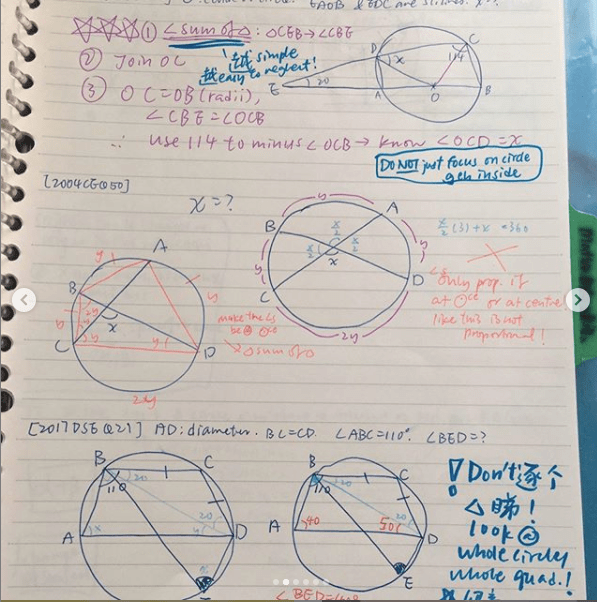 ① ∠sum of △: △CEB → ∠CBE
② Join OC
越simple
越easy to neglect!
③ OC=OB (radii),
∠CBE=∠OCB
∴ use 114 to minus ∠OCB → know ∠OCD = x
DO NOT just focus on circle
geh inside
D
C
x
114
E
20
A
O
B
[2004CEQ50]
x=?
y
A
B
x/2
x/2
x/2
x
y
y
C
D
2y
x/2 (3) + x = 360
only prop. if
at ⊙ce or at centre
like this is not
proportional!
A
y
B
y
2y
x
y
y
C
D
2y
make the ∠s
be @ ⊙ce
∠sum of △
[2017DSEQ21] AD: diameter. BC=CD. ∠ABC=110°. ∠BED=?
B
C
20
110
20
A
x
y
D
B
C
20
110
20
A
40
50
D
E
Don't逐个
△睇!
look @
whole circle,
whole quad.!